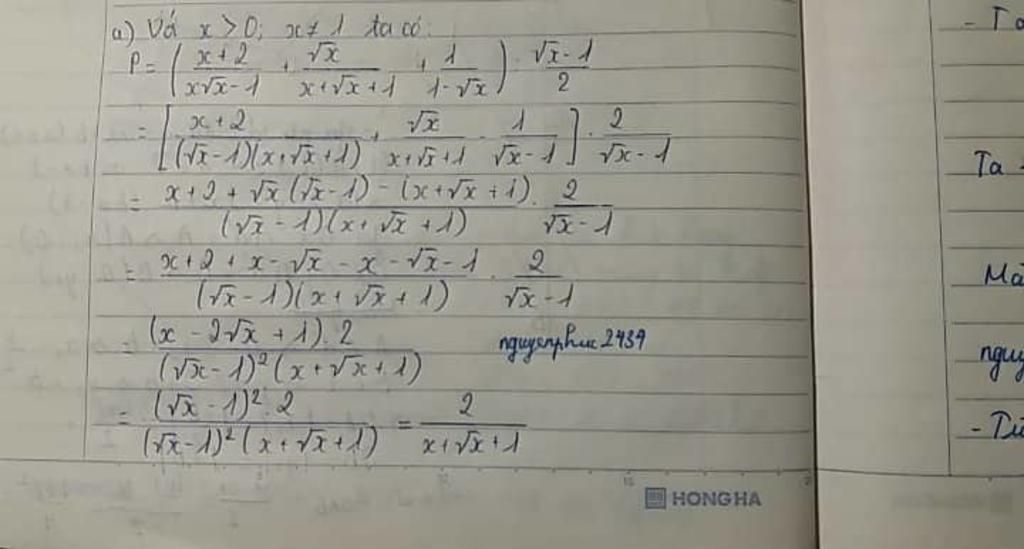 a) Với x > 0; x ≠ 1 ta có:
P = ( (x+2)/(x√x - 1) + √x/(x+√x+1) + 1/(1-√x) ) : (√x - 1)/2
= [ (x+2)/((√x-1)(x+√x+1)) + √x/(x+√x+1) - 1/(√x-1) ] . 2/(√x-1)
= (x+2+√x(√x-1) - (x+√x+1))/((√x-1)(x+√x+1)) . 2/(√x-1)
= (x+2+x-√x-x-√x-1)/((√x-1)(x+√x+1)) . 2/(√x-1)
= ((x-2√x+1).2)/((√x-1)²(x+√x+1))
nguyenphuc2439
= ((√x-1)².2)/((√x-1)²(x+√x+1)) = 2/(x+√x+1)
HONG HA
- Ta